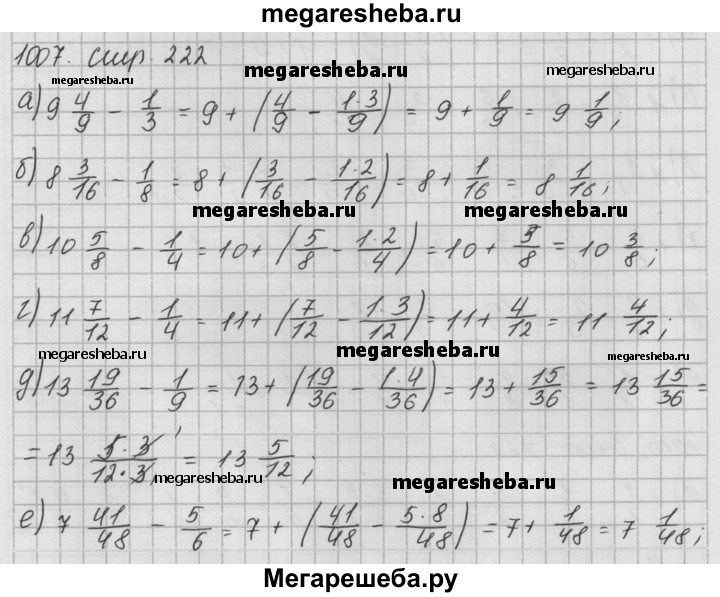 megaresheba.ru
1007. стр 222
megaresheba.ru
megaresheba.ru
а) 9 4/9 - 1/3 = 9 + (4/9 - 1·3/9) = 9 + 1/9 = 9 1/9;
б) 8 3/16 - 1/8 = 8 + (3/16 - 1·2/16) = 8 + 1/16 = 8 1/16;
megaresheba.ru
megaresheba.ru
megaresheba.ru
в) 10 5/8 - 1/4 = 10 + (5/8 - 1·2/4) = 10 + 3/8 = 10 3/8;
г) 11 7/12 - 1/4 = 11 + (7/12 - 1·3/12) = 11 + 4/12 = 11 4/12;
megaresheba.ru
megaresheba.ru
megaresheba.ru
д) 13 19/36 - 1/9 = 13 + (19/36 - 1·4/36) = 13 + 15/36 = 13 15/36 =
= 13 5·3/12·3 = 13 5/12;
megaresheba.ru
megaresheba.ru
е) 7 41/48 - 5/6 = 7 + (41/48 - 5·8/48) = 7 + 1/48 = 7 1/48;
Мегарешеба.ру